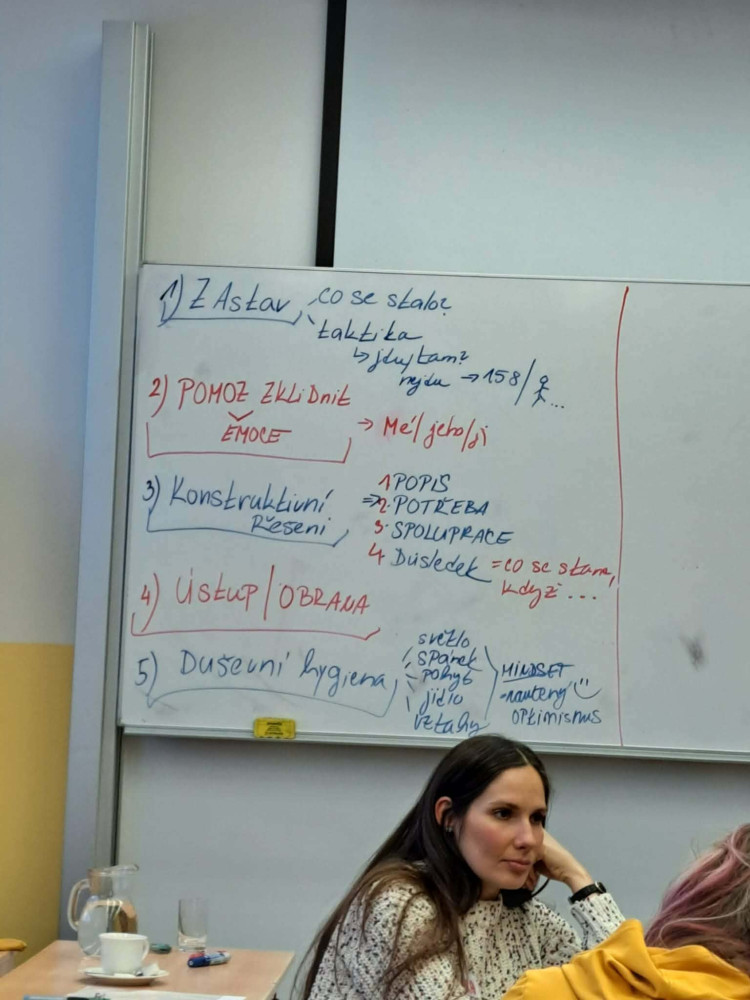 1) ZAstav co se stalo?
taktika
↳ jdu tam?
nejdu → 158/
2) POMOZ ZKLIDNIT
EMOCE → Mé/jeho/jí
3) Konstruktivní
Řešení
1 POPIS
⇒ 2. POTŘEBA
3. SPOLUPRACE
4 Důsledek = co se stane,
když ...
4) Ústup/OBRANA
5) Duševní hygiena
světlo
spánek
pohyb
jídlo
vztahy
MINDSET
-naučený
optimismus